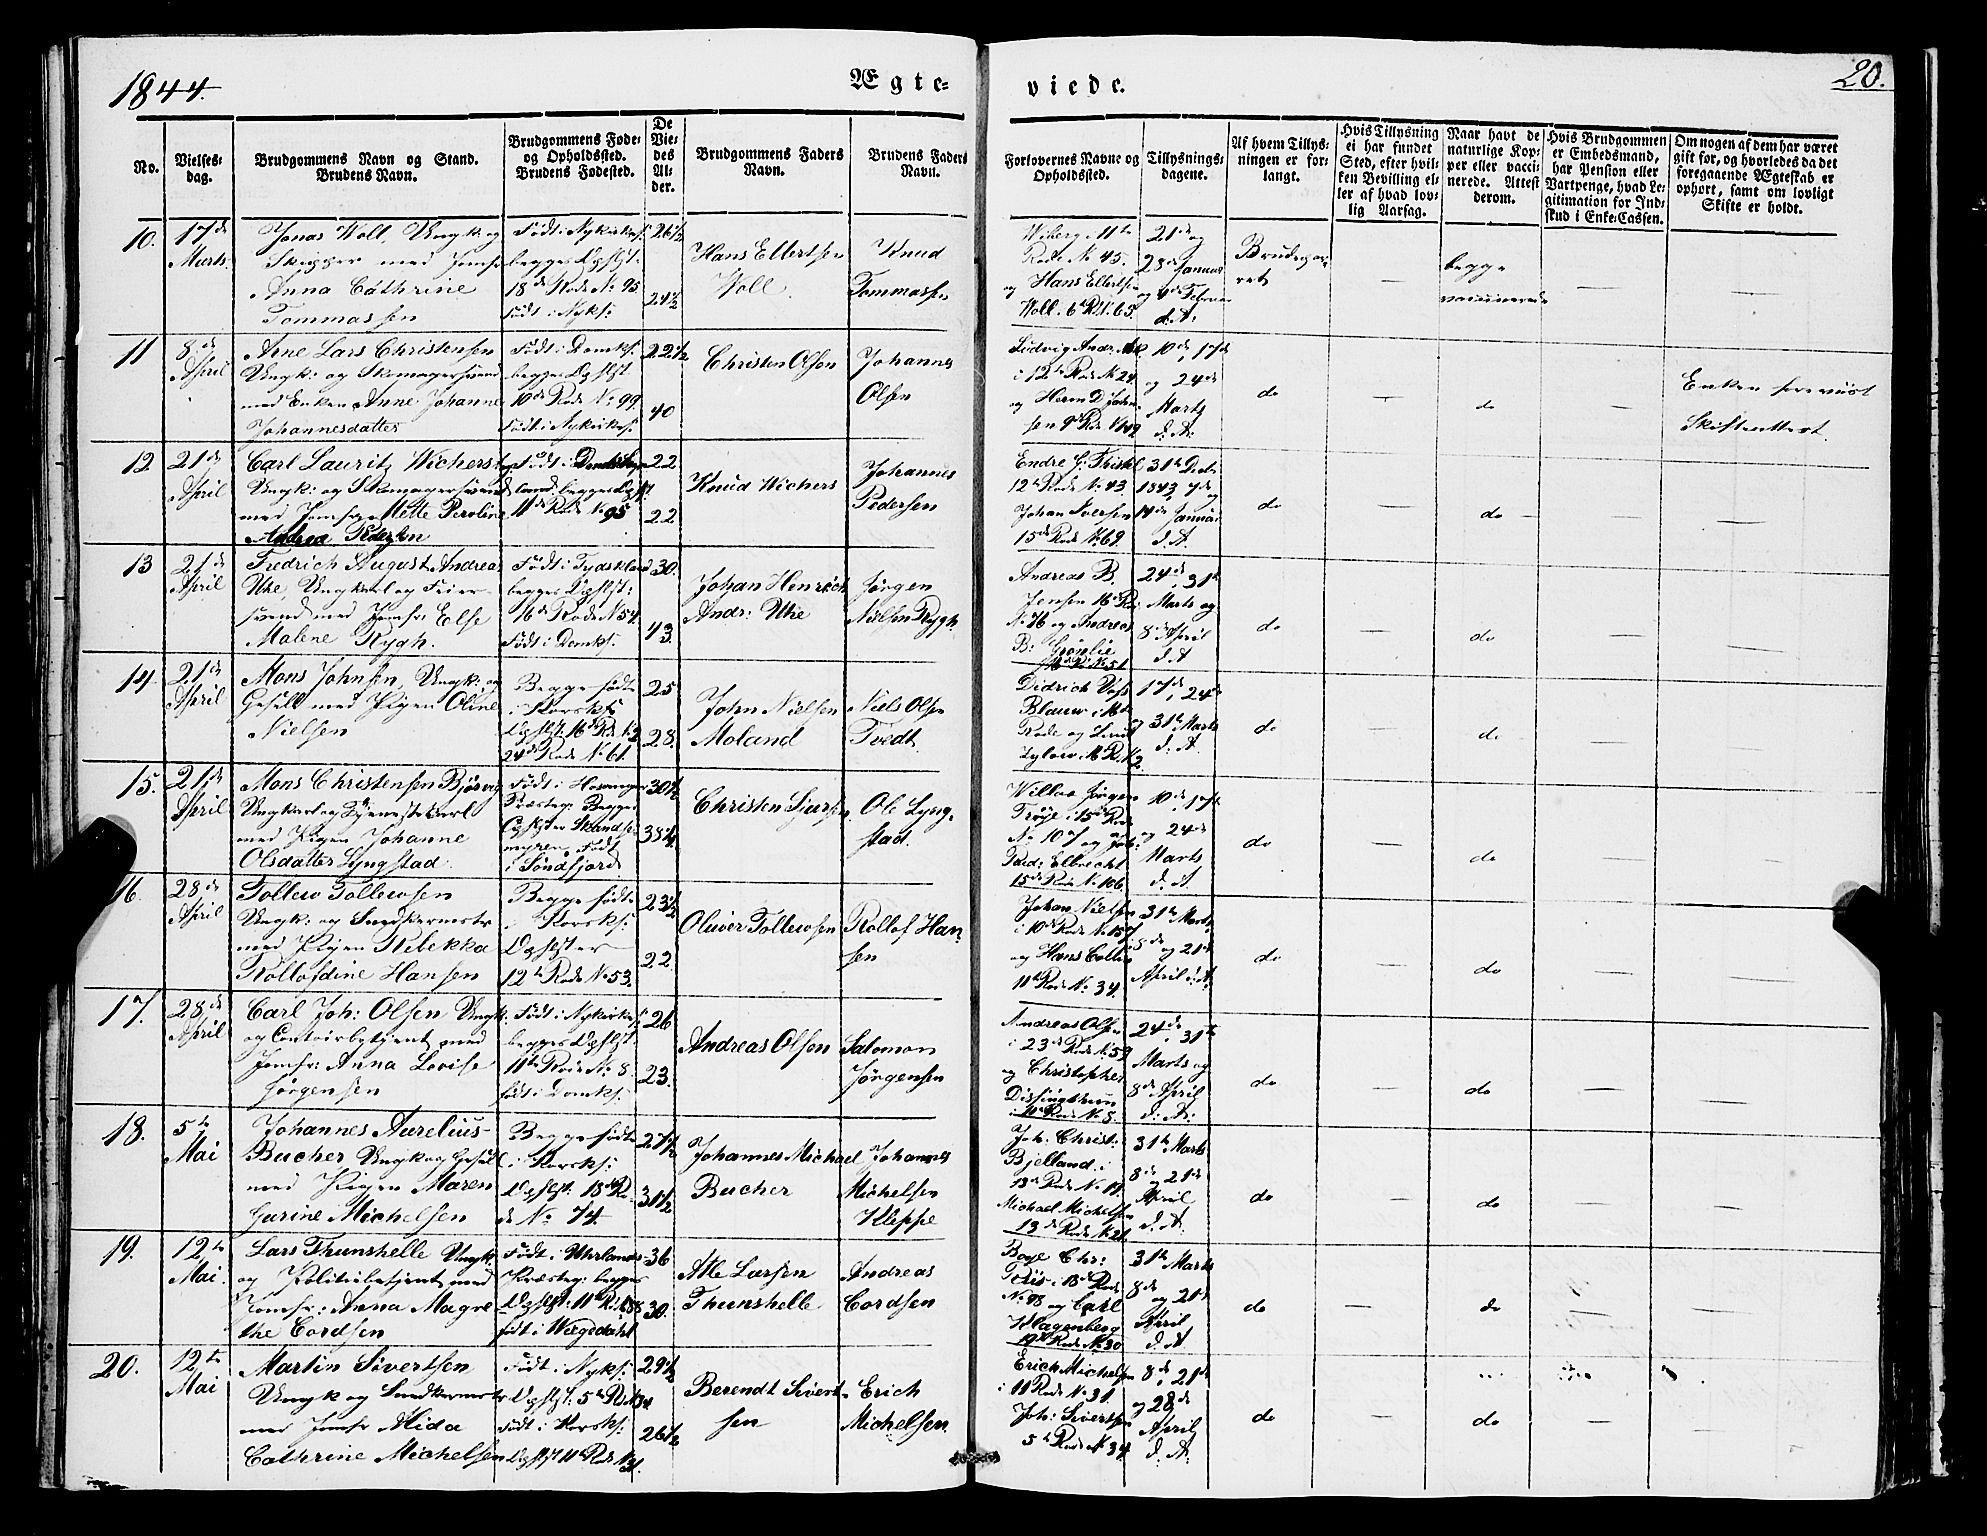 1844.
Ægte-
viede.
20.
No.
Vielses-
dag.
Brudgommens Navn og Stand.
Brudens Navn.
Brudgommens Føde-
og Opholdssted.
Brudens Fødested.
De
Vie-
des
Al-
der.
Brudgommens Faders
Navn.
Brudens Faders
Navn.
Forlovernes Navne og
Opholdssted.
Tillysnings-
dagene.
Af hvem Tillys-
ningen er for-
langt.
Hvis Tillysning
ei har fundet
Sted, efter hvil-
ken Bevilling el-
ler af hvad lov-
lig Aarsag.
Naar havt de
naturlige Kop-
per eller vacci-
nerede. Attest
derom.
Hvis Brudgommen
er Embedsmand,
har Pension eller
Vartpenge, hvad Le-
gitimation for Ind-
skud i Enke-Cassen.
Om nogen af dem har været
gift før, og hvorledes da det
foregaaende Ægteskab er
ophørt, samt om lovligt
Skifte er holdt.
10.
17de
Marts
Jonas Woll, Ungk og
Skipper med Jomfr
Anna Cathrine
Tommassen
Født i Nykirkes:
begges Opholdst:
18de Rode No 95
født i Nyks:
26½
24½
Hans Ellertsen
Woll.
Knud
Tommassen
Wiberg i 11te
Rode No 45.
og Hans Ellertsen
Woll. 6te R. N. 65.
21de og
28de Januar
og 4de Februar
d. A:
Brudepar-
ret
—
begge
vaccinerede
—
—
11
8de
April
Arne Lars Christensen
Ungk: og Skomagersvend
med Enken Anne Johanne
Johannesdatter
Født i Domks:
begges Opholdst
10de Rode No 99
Født i Nykirkes:
22½
40
Christen Olsen
Johannes
Olsen
Ludvig Andr.
i 12te Rode N 24
og Herm D John-
sen 9de Rode
10de, 17de
og 24de
Marts
d: A:
do
—
do
—
Enken foreviist
Skifteattest.
12
21de
April
Carl Lauritz Wichers
Ungk: og Skomagersvend
med Jomfr. Mette Peroline
Andrea Pedersen
11te Rode No 95
22
22
Knud Wichers
Johannes
Pedersen
12te Rode No 43
Johan Iversen
15de Rode No 69.
31te Decbr
1843, 7de og
14de Januar
d. A.
do
—
do
—
—
13
21de
April
Fredrich August Andreas
Uhe, Ungkarl og Feier-
svend med Jomfr: Else
Malene Rygh.
Født i Tydskland
begges Opholdst:
16de Rode N 54.
Født i Domks.
30.
43.
Johan Henrich
Andr: Uhe
Jørgen
Nielsen Rygh.
Andreas B.
Jensen 16de Rode
No 76 og Andreas
B: Grønlie
24de, 31te
Marts og
8de April
d. A
do
—
do
—
—
14.
21de
April
Mons Johnsen, Ungk: og
Gesell med Pigen Oline
Nielsen
Begge fødte
i Korsks:
Opholdst: 16de Rode N 2
24de Rode No 61.
25
28.
John Nielsen
Moland
Niels Olsen
Tvedt
Didrich Voss
Blauw i 16de
Rode og
17de, 24de
og 31te Marts
d. A.
do
—
do
—
—
15.
21de
April
Mons Christensen Bjørvig
Ungkarl og Tjenestekarl
med Pigen Johanne
Olsdatter Lyngstad.
Præsteg: Begges
myren. Født
i Søndfjord
30½
38½
Christen Siursen
Ole Lyng-
stad.
Willas Jørgen
Frøje i 15de Rode
No 107 og Joh:
Fred: Elbrecht
15de Rode No 106.
10de, 17de
og 24de
Marts
d. A.
do
—
do
—
—
16.
28de
April
Tollew Tollewsen
Ungk: og Snedkermstr
med Pigen Rebekka
Rollofdine Hansen
Begge fødte
i Korsks:
12te Rode No 53.
23½
22.
Oliver Tollewsen
Rollof Han-
sen
Johan Nielsen
i 10de Rode No 157
og Hans
11te Rode No 34.
31te Marts,
8de og 21de
April d. A.
do
—
do
—
—
17.
28de
April
Carl Joh: Olsen Ungk:
og Contoirbetjent med
Jomfr: Anna Lovise
Jørgensen
Født i Nykirkes:
begges Opholdst.
11te Rode No 8.
født i Domks.
26
23.
Andreas Olsen
Salomon
Jørgensen
Andreas Olsen
i 23de Rode No 59
og Christopher
24de, 31te
Marts og
8de April
d: A:
do
—
do
—
—
18.
5te
Mai
Johannes Aurelius
Bucher Ungk og Gesell
med Pigen Maren
Gurine Michelsen
Begge fødte
i Korsks:
Opholdst: 18de Ro-
de No 74.
27½
31½
Johannes Michael
Bucher
Johannes
Michelsen
Kleppe
Joh: Christ:
Bjelland i
13de Rode No 19.
Michael Michelsen
13de Rode N 21
31te Marts
8de og 21de
April
d. A.
do
—
do
—
—
19.
12te
Mai.
Lars Thunshelle Ungk.
og Politibetjent med
Jomfr: Anna Magre-
the Cordsen
Født i Uhrlands
Præsteg: begges
Opholdst: 11te Rode N 88
født i Wægsdahl
36
30.
Atle Larsen
Thunshelle
Andreas
Cordsen
Boye Chr:
Friis i 18de Rode
No 98 og Carl
Klagenberg
19de Rode N 30
31te Marts
8de og 21de
April
d. A
do
—
do
—
—
20.
12te
Mai
Martin Sivertsen
Ungk og Snedkermstr
med Jomfr Alida
Cathrine Michelsen
Født i Nyks:
Opholdst: 5te Rode N 34
Født i Korsks:
Opholdst 11te Rode N 31.
29½
26½
Berendt Sivert-
sen
Erich
Michelsen.
Erich Michelsen
i 11 Rode No 31
Joh: Sivertsen
5te Rode No 34.
8de, 21de
og 28de
April
d. A:
do
—
do
—
—